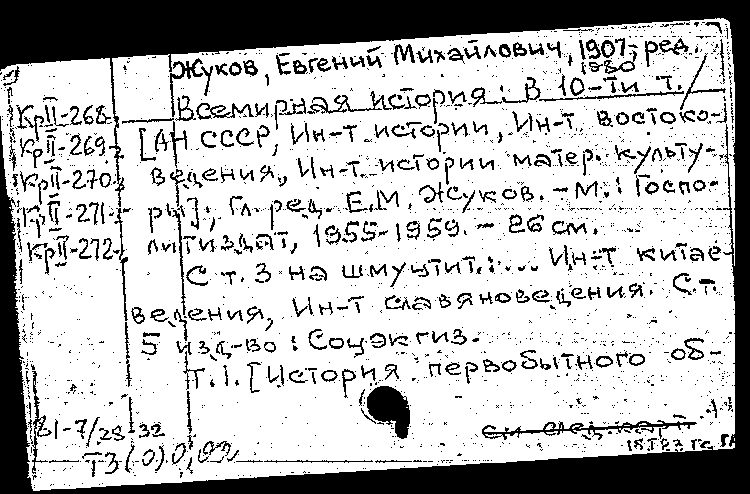 Жуков, Евгений Михайлович, 1907- ред.
1980
Всемирная история: В 10-ти т. /
[АН СССР, Ин-т истории, Ин-т востоко-
ведения, Ин-т истории матер. культу-
ры]; Гл. ред. Е.М. Жуков. - М.: Госпо-
литиздат, 1955-1959. - 26 см.
С т. 3 на шмуцтит.: ... Ин-т китае-
ведения, Ин-т славяноведения. С т.
5 изд-во: Соцэкгиз.
Т. 1. [История первобытного об-
КрII-268
КрII-269
КрII-270
КрII-271
КрII-272
81-7/28-32
Т3(0)0,02
см. след. карт.